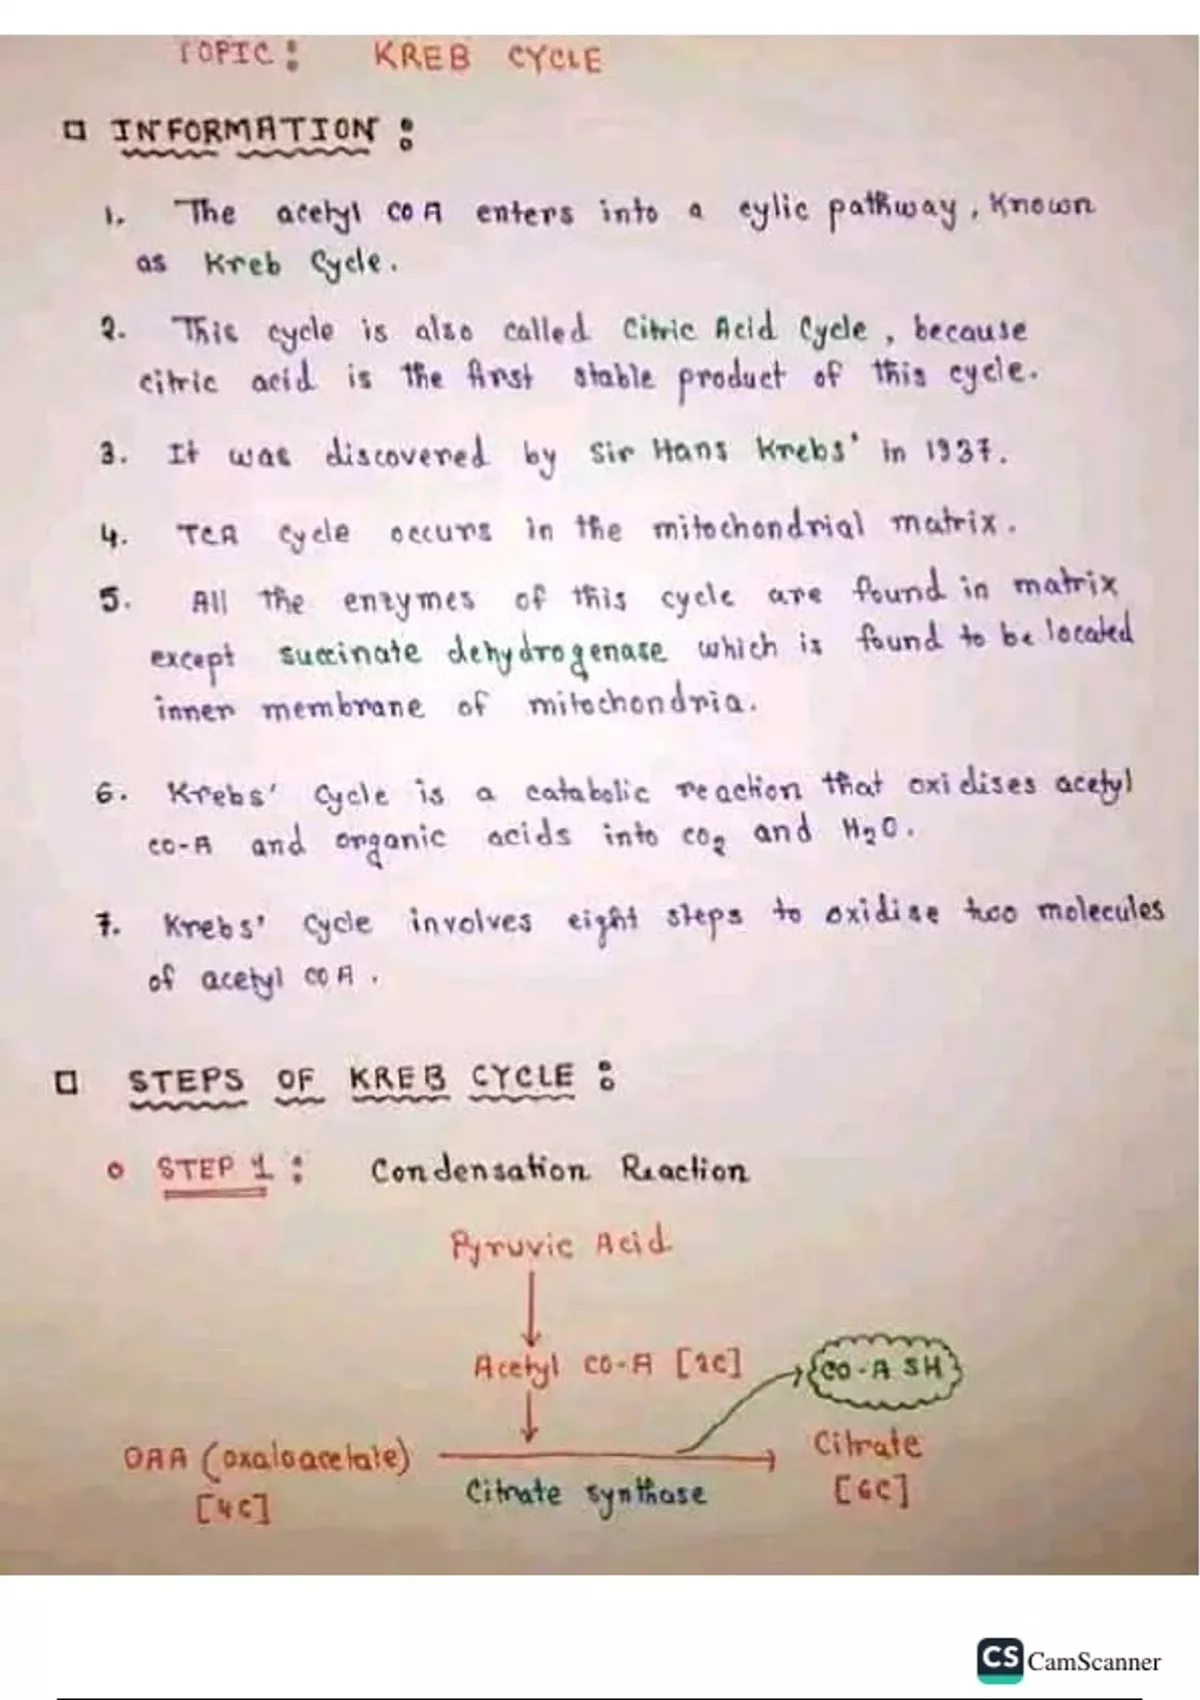 TOPIC : KREB CYCLE
INFORMATION :
1. The acetyl CO A enters into a cylic pathway, Known
as Kreb Cycle.
2. This cycle is also called Citric Acid Cycle, because
citric acid is the first stable product of this cycle.
3. It was discovered by Sir Hans Krebs' in 1937.
4. TCA Cycle occurs in the mitochondrial matrix.
5. All the enzymes of this cycle are found in matrix
except succinate dehydrogenase which is found to be located
inner membrane of mitochondria.
6. Krebs' Cycle is a catabolic reaction that oxidises acetyl
CO-A and organic acids into CO₂ and H₂O.
7. Krebs' Cycle involves eight steps to oxidise two molecules
of acetyl CO A.
STEPS OF KREB CYCLE :
STEP 1 : Condensation Reaction
Pyruvic Acid
Acetyl CO-A [2C]
CO-A SH
OAA (oxaloacetate)
Citrate
[4C]
Citrate synthase
[6C]
CS CamScanner